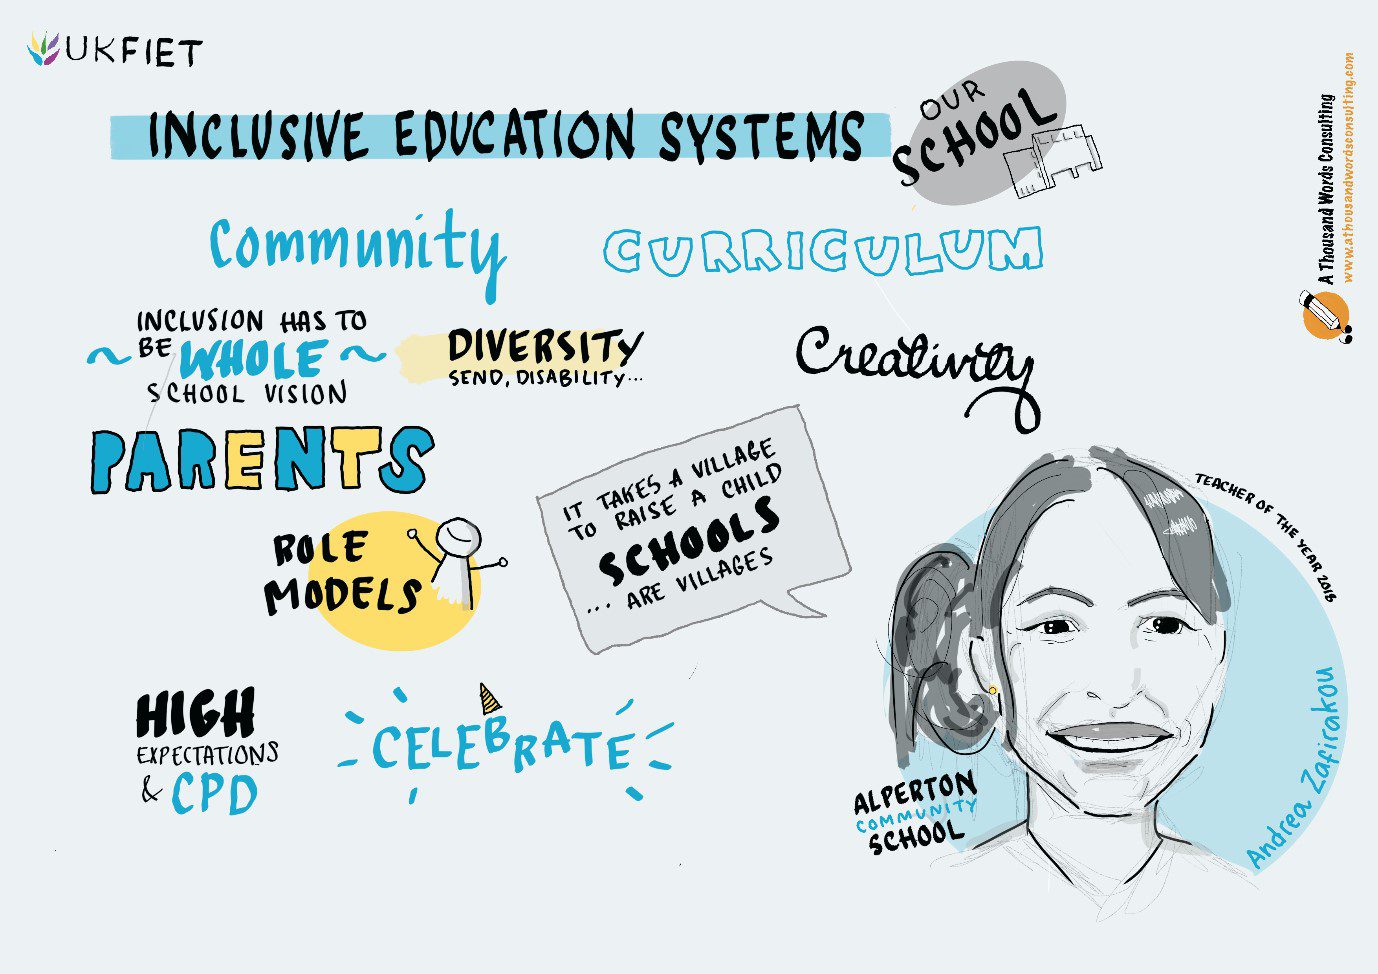 UKFIET
INCLUSIVE EDUCATION SYSTEMS
OUR
SCHOOL
Community
CURRICULUM
INCLUSION HAS TO
BE WHOLE
SCHOOL VISION
DIVERSITY
SEND, DISABILITY...
Creativity
PARENTS
IT TAKES A VILLAGE
TO RAISE A CHILD
SCHOOLS
... ARE VILLAGES
ROLE
MODELS
HIGH
EXPECTATIONS
& CPD
CELEBRATE
TEACHER OF THE YEAR 2018
Andrea Zafirakou
ALPERTON
COMMUNITY
SCHOOL
A Thousand Words Consulting
www.athousandwordsconsulting.com